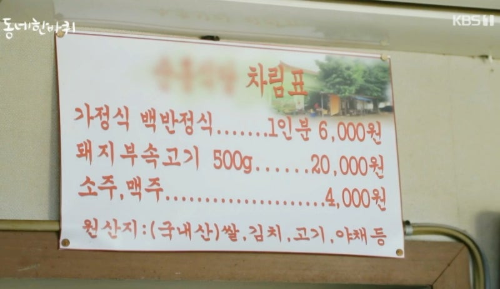 동네한바퀴
KBS 1
차림표
가정식 백반정식.......1인분 6,000원
돼지부속고기 500g......20,000원
소주,맥주......................4,000원
원산지:(국내산)쌀,김치,고기,야채등